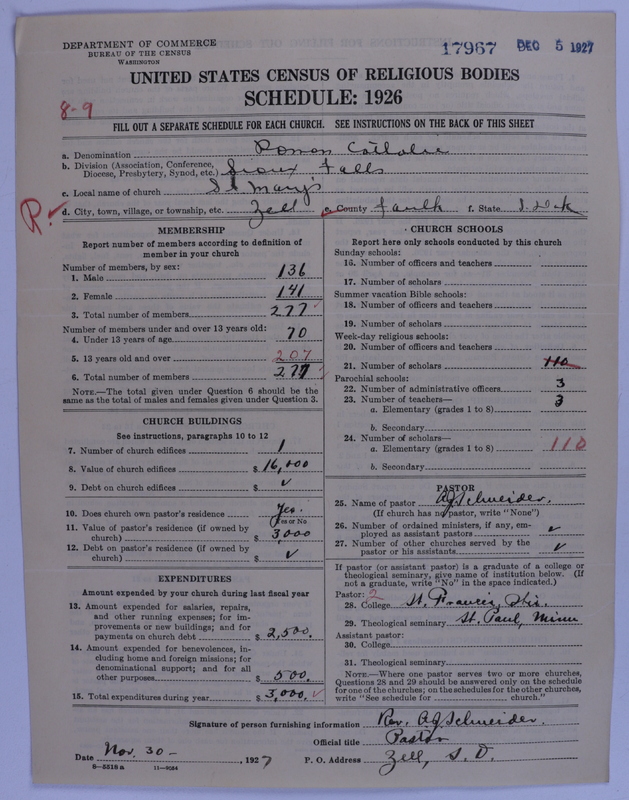 DEPARTMENT OF COMMERCE
BUREAU OF THE CENSUS
WASHINGTON
17967 DEC 5 1927
UNITED STATES CENSUS OF RELIGIOUS BODIES
SCHEDULE: 1926
8-9
FILL OUT A SEPARATE SCHEDULE FOR EACH CHURCH. SEE INSTRUCTIONS ON THE BACK OF THIS SHEET
a. Denomination Roman Catholic
b. Division (Association, Conference, Diocese, Presbytery, Synod, etc.) Sioux Falls
c. Local name of church St Mary's
R. ✓
d. City, town, village, or township, etc. Zell e. County Faulk f. State S. Dak
MEMBERSHIP
Report number of members according to definition of
member in your church
Number of members, by sex:
1. Male 136
2. Female 141
3. Total number of members 277 ✓
Number of members under and over 13 years old:
4. Under 13 years of age 70
5. 13 years old and over 207
6. Total number of members 277 ✓
NOTE.—The total given under Question 6 should be the
same as the total of males and females given under Question 3.
CHURCH BUILDINGS
See instructions, paragraphs 10 to 12
7. Number of church edifices 1
8. Value of church edifices $ 16,000
9. Debt on church edifices $ ✓
10. Does church own pastor's residence Yes.
(Yes or No)
11. Value of pastor's residence (if owned by
church) $ 3000
12. Debt on pastor's residence (if owned by
church) $ ✓
EXPENDITURES
Amount expended by your church during last fiscal year
13. Amount expended for salaries, repairs,
and other running expenses; for im-
provements or new buildings; and for
payments on church debt $ 2,500.
14. Amount expended for benevolences, in-
cluding home and foreign missions; for
denominational support; and for all
other purposes $ 500.
15. Total expenditures during year $ 3,000. ✓
CHURCH SCHOOLS
Report here only schools conducted by this church
Sunday schools:
16. Number of officers and teachers
17. Number of scholars
Summer vacation Bible schools:
18. Number of officers and teachers
19. Number of scholars
Week-day religious schools:
20. Number of officers and teachers
21. Number of scholars 110
Parochial schools:
22. Number of administrative officers 3
23. Number of teachers—
a. Elementary (grades 1 to 8) 3
b. Secondary
24. Number of scholars—
a. Elementary (grades 1 to 8) 110
b. Secondary
PASTOR
25. Name of pastor A J Schneider.
(If church has no pastor, write "None")
26. Number of ordained ministers, if any, em-
ployed as assistant pastors ✓
27. Number of other churches served by the
pastor or his assistants ✓
If pastor (or assistant pastor) is a graduate of a college or
theological seminary, give name of institution below. (If
not a graduate, write "No" in the space indicated.)
Pastor: 2
28. College St. Francis, Wis.
29. Theological seminary St. Paul, Minn
Assistant pastor:
30. College
31. Theological seminary
NOTE.—Where one pastor serves two or more churches,
Questions 28 and 29 should be answered only on the schedule
for one of the churches; on the schedules for the other churches,
write "See schedule for church."
Signature of person furnishing information Rev. A. J. Schneider.
Official title Pastor
Date Nov. 30 – , 1927 P. O. Address Zell, S. D.
8—5518 a 11—9584